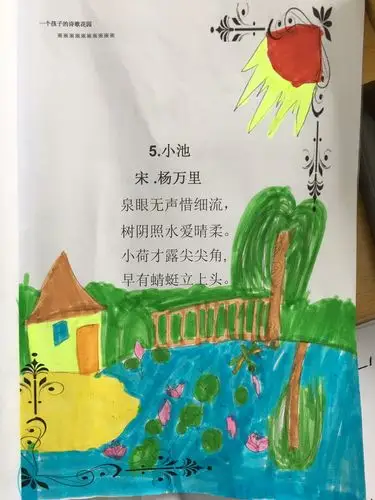 一个孩子的诗歌花园
5.小池
宋 .杨万里
泉眼无声惜细流，
树阴照水爱晴柔。
小荷才露尖尖角,
早有蜻蜓立上头。